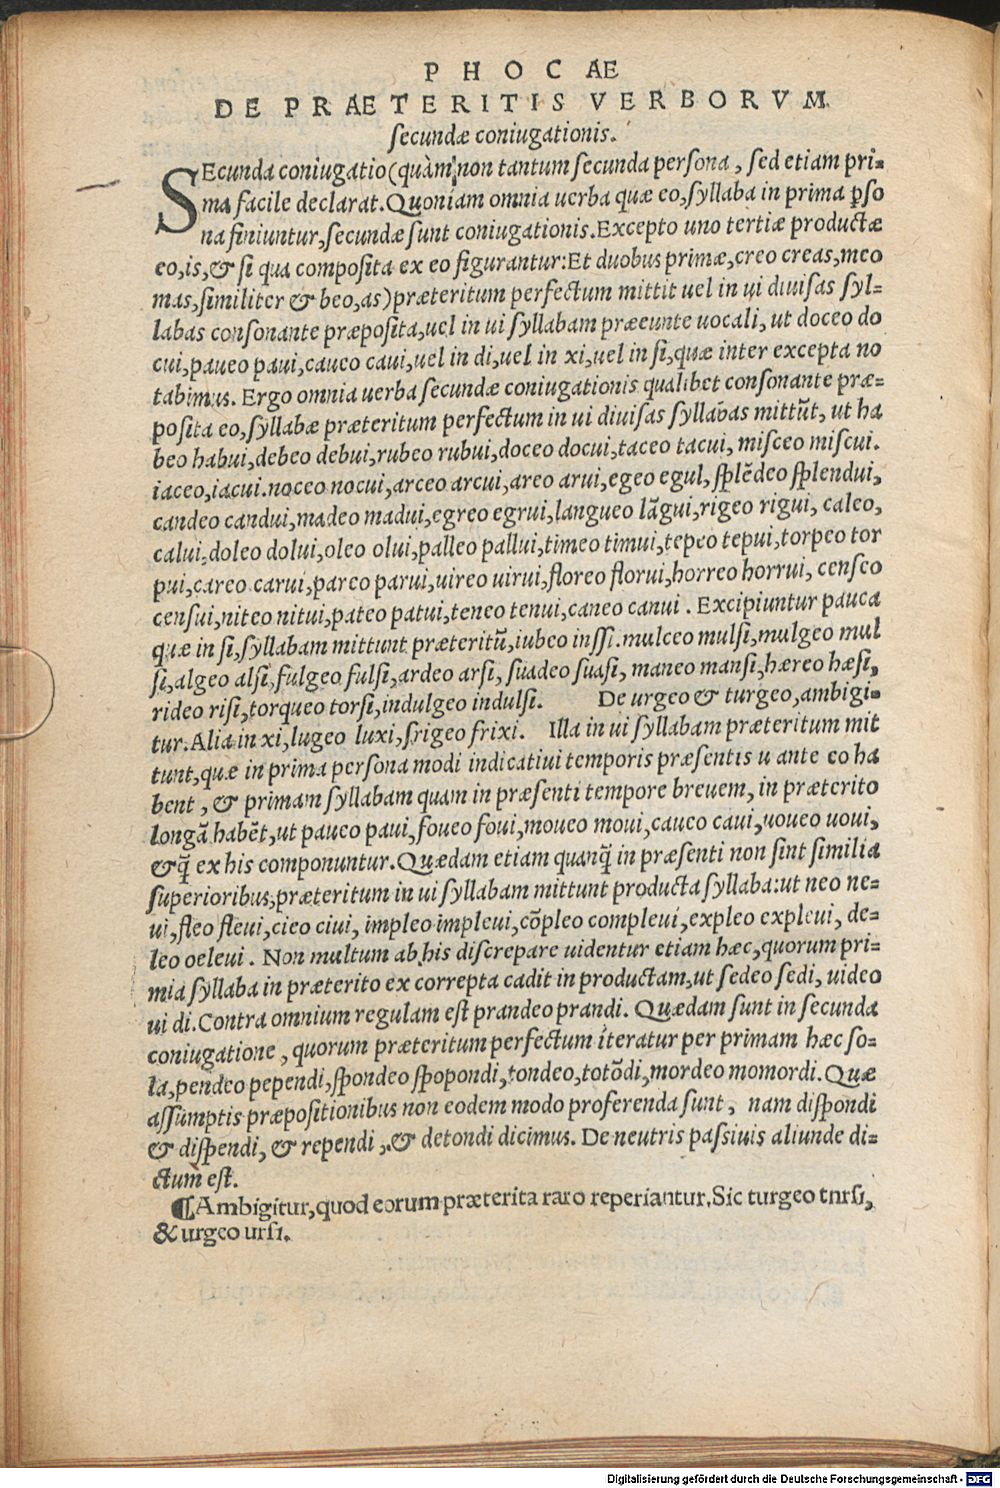 PHOCAE
DE PRAETERITIS VERBORVM.
secundæ coniugationis.
SEcunda coniugatio (quàm non tantum secunda persona, sed etiam pri-
ma facile declarat. Quoniam omnia uerba quæ eo, syllaba in prima ꝑso
na finiuntur, secundæ sunt coniugationis. Excepto uno tertiæ productæ
eo, is, & si qua composita ex eo figurantur: Et duobus primæ, creo creas, meo
mas, similiter & beo, as) præteritum perfectum mittit uel in ui diuisas syl-
labas consonante præposita, uel in ui syllabam præeunte uocali, ut doceo do
cui, paueo paui, caueo caui, uel in di, uel in xi, uel in si, quæ inter excepta no
tabimus. Ergo omnia uerba secundæ coniugationis qualibet consonante præ-
posita eo, syllabæ præteritum perfectum in ui diuisas syllabas mittūt, ut ha
beo habui, debeo debui, rubeo rubui, doceo docui, taceo tacui, misceo miscui.
iaceo, iacui. noceo nocui, arceo arcui, areo arui, egeo egui, splēdeo splendui,
candeo candui, madeo madui, egreo egrui, langueo lāgui, rigeo rigui, caleo,
calui, doleo dolui, oleo olui, palleo pallui, timeo timui, tepeo tepui, torpeo tor
pui, careo carui, pareo parui, uireo uirui, floreo florui, horreo horrui, censeo
censui, niteo nitui, pateo patui, teneo tenui, caneo canui. Excipiuntur pauca
quæ in si, syllabam mittunt præteritū, iubeo iussi. mulceo mulsi, mulgeo mul
si, algeo alsi, fulgeo fulsi, ardeo arsi, suadeo suasi, maneo mansi, hæreo hæsi,
rideo risi, torqueo torsi, indulgeo indulsi. De urgeo & turgeo, ambigi-
tur. Alia in xi, lugeo luxi, frigeo frixi. Illa in ui syllabam præteritum mit
tunt, quæ in prima persona modi indicatiui temporis præsentis u ante eo ha
bent, & primam syllabam quam in præsenti tempore breuem, in præterito
longā habēt, ut paueo paui, foueo foui, moueo moui, caueo caui, uoueo uoui,
& q̄ ex his componuntur. Quædam etiam quanq̄ in præsenti non sint similia
superioribus, præteritum in ui syllabam mittunt producta syllaba: ut neo ne-
ui, fleo fleui, cieo ciui, impleo impleui, cōpleo compleui, expleo expleui, de-
leo oeleui. Non multum ab his discrepare uidentur etiam hæc, quorum pri-
mia syllaba in præterito ex correpta cadit in productam, ut sedeo sedi, uideo
ui di. Contra omnium regulam est prandeo prandi. Quædam sunt in secunda
coniugatione, quorum præteritum perfectum iteratur per primam hæc so-
la, pendeo pependi, spondeo spopondi, tondeo, totōdi, mordeo momordi. Quæ
assumptis præpositionibus non eodem modo proferenda sunt, nam dispondi
& dispendi, & rependi, & detondi dicimus. De neutris passiuis aliunde di-
ctum est.
¶ Ambigitur, quod eorum præterita raro reperiantur. Sic turgeo tnrsi,
& urgeo ursi.
Digitalisierung gefördert durch die Deutsche Forschungsgemeinschaft - DFG